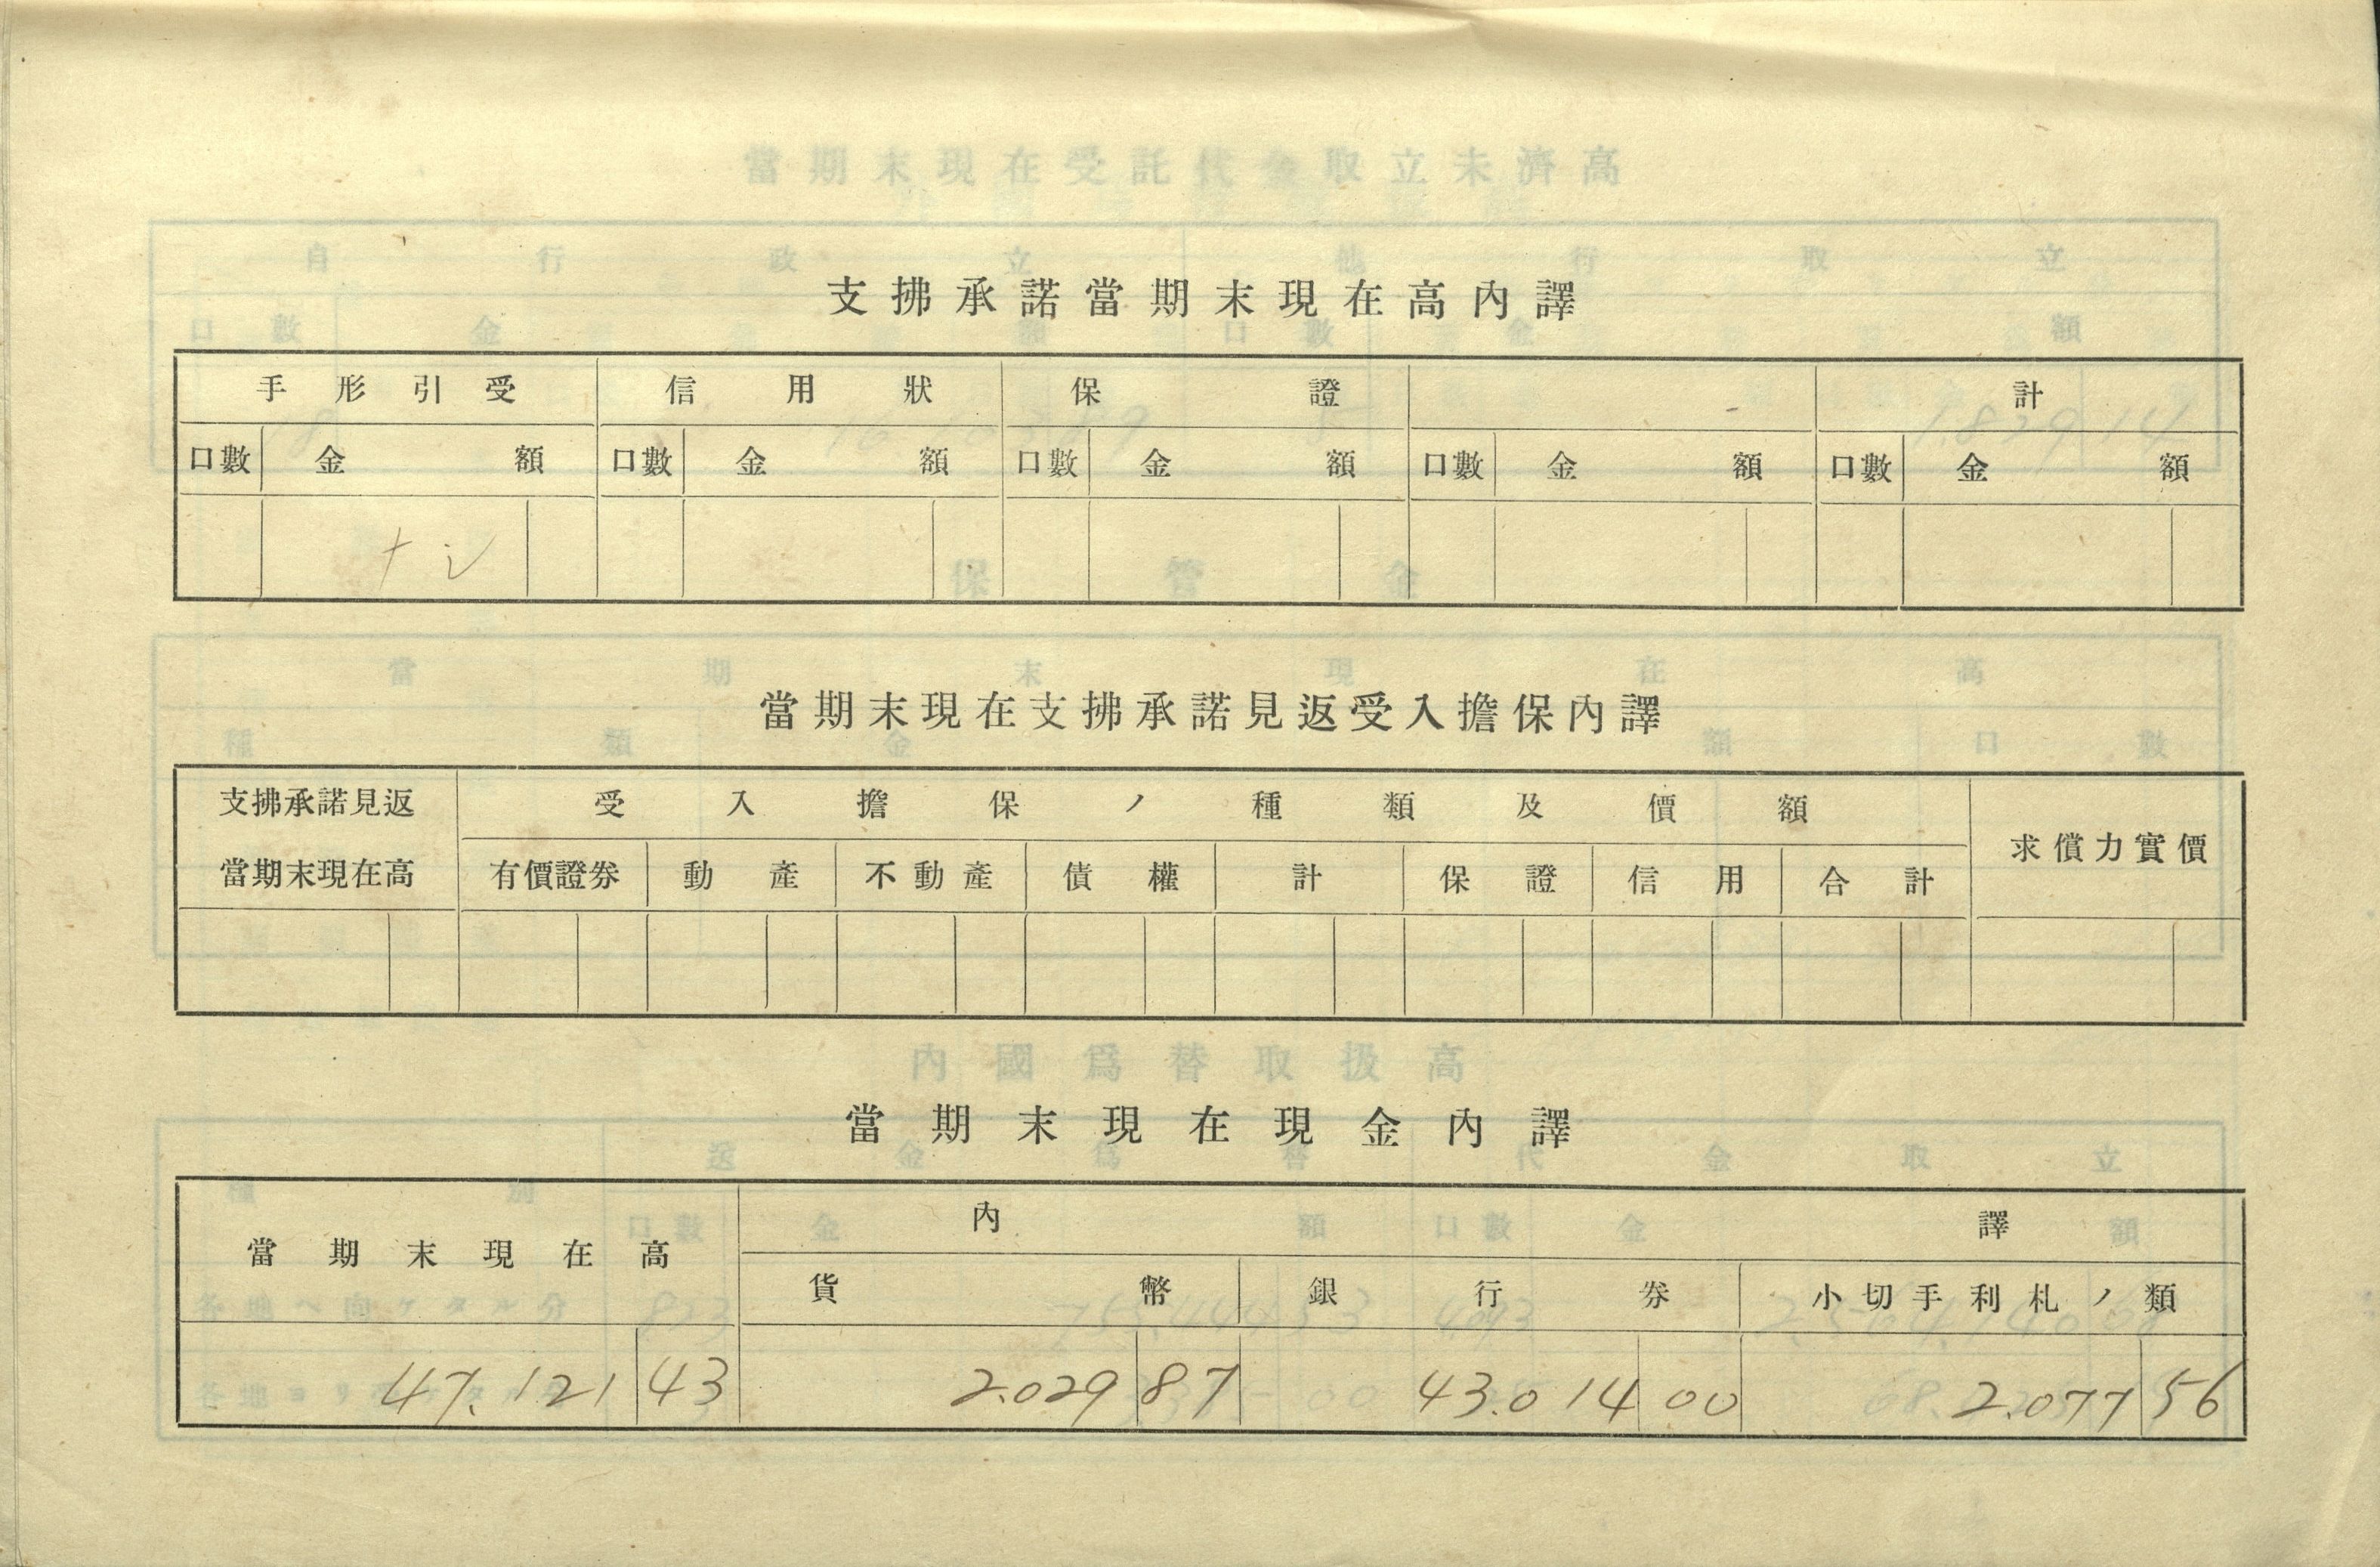 支拂承諾當期末現在高內譯
手形引受 信用狀 保證 計
口數 金額 口數 金額 口數 金額 口數 金額 口數 金額
ナシ
當期末現在支拂承諾見返受入擔保內譯
支拂承諾見返當期末現在高 受入擔保ノ種類及價額 求償力實價
有價證券 動產 不動產 債權 計 保證 信用 合計
當期末現在現金內譯
當期末現在高 內譯
貨幣 銀行券 小切手利札ノ類
47.121 43 2.029 87 43.014 00 2.077 56